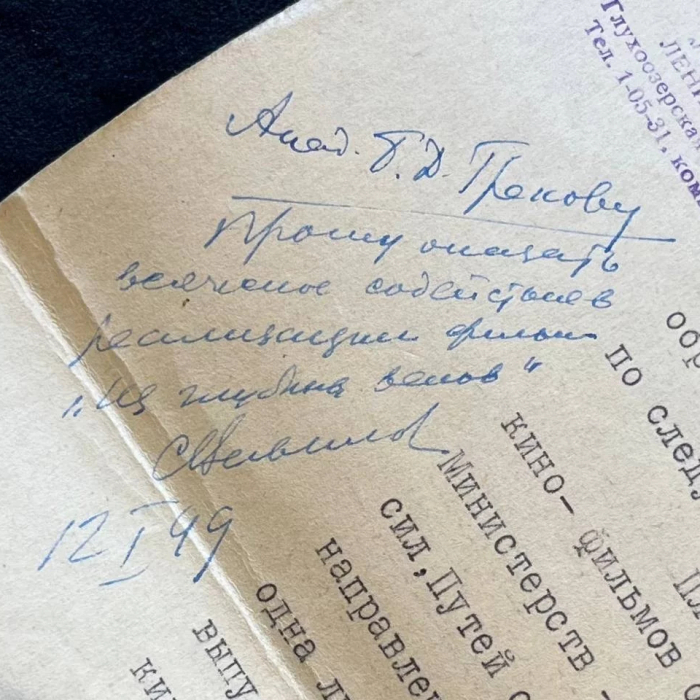 Акад. Б.Д. Грекову
Прошу оказать
всяческое содействие в
реализации фильма
„Из глубины веков"
СВавилов
12 I 49
ЛЕН
Глухоозерская
Тел. 1-05-31, ком
обр
по след
пл
кино-фильмов
Министерств
сил, Путей с
направле
одна л
выпу
ки